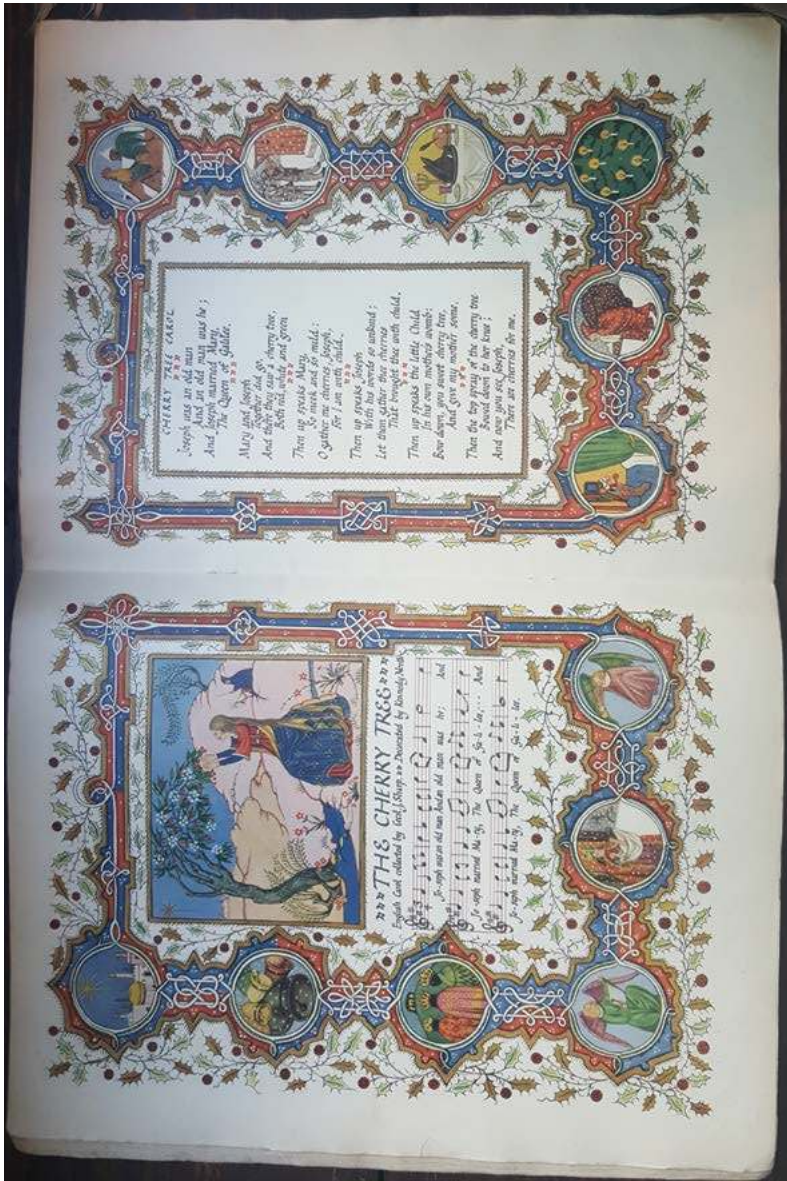 THE CHERRY TREE
English Carol collected by Cecil J. Sharp. Decorated by Kennedy North
Jo-seph was an old man And an old man was he; And
Jo-seph married Ma-ry, The Queen of Ga-li-lee,... And
Jo-seph married Ma-ry, The Queen of Ga-li-lee.
CHERRY TREE CAROL
Joseph was an old man
And an old man was he;
And Joseph married Mary,
The Queen of Galilee.
Mary and Joseph
Together did go,
And there they saw a cherry tree,
Both red, white and green
Then up speaks Mary,
So meek and so mild:
O gather me cherries Joseph,
For i am with child.
Then up speaks Joseph
With his words so unkind:
Let them gather thee cherries
That brought thee with child.
Then up speaks the little Child
In his own mothers womb:
Bow down, you sweet cherry tree,
And give my mother some.
Then the top spray of the cherry tree
Bowed down to her knee;
And now you see, Joseph,
There are cherries for me.